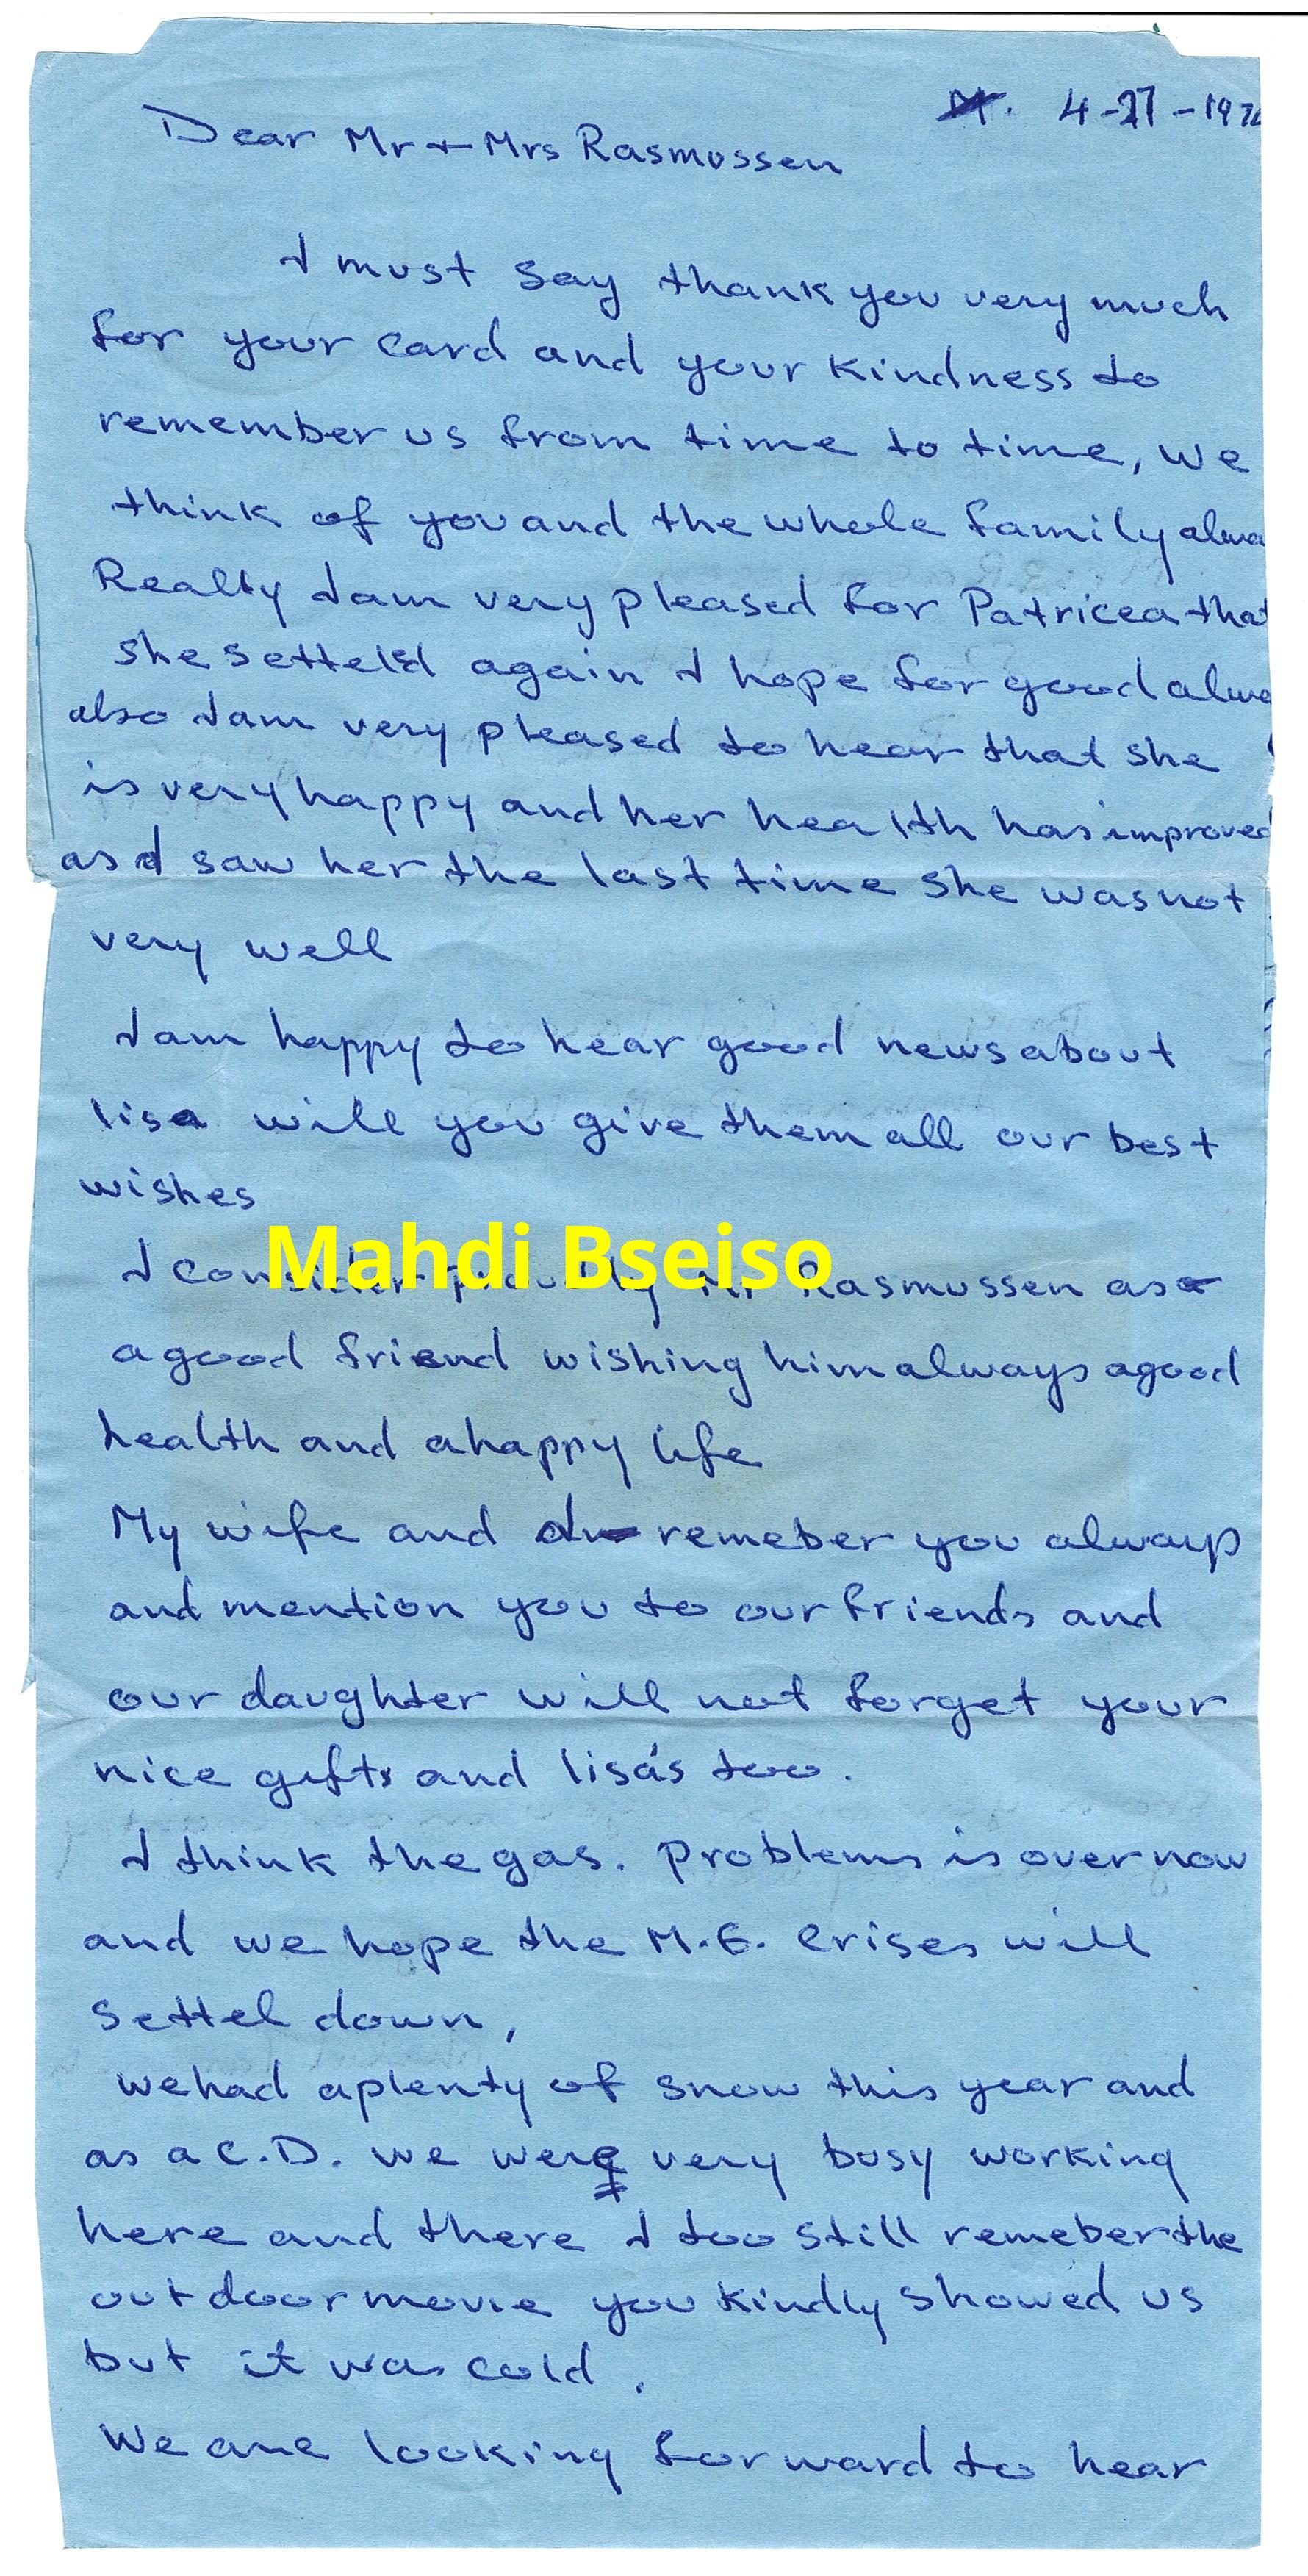 4-27-197
Dear Mr + Mrs Rasmussen
I must say thank you very much
for your card and your kindness to
remember us from time to time, we
think of you and the whole family alwa
Really I am very pleased for Patricea that
she setteld again I hope for good alwa
also I am very pleased to hear that she
is very happy and her health has improved
as I saw her the last time she was not
very well
I am happy to hear good news about
lisa will you give them all our best
wishes
Mahdi Bseiso
I consider proudly Mr Rasmussen as
a good friend wishing him always a good
health and a happy life
My wife and remeber you always
and mention you to our friends and
our daughter will not forget your
nice gifts and lisa's too.
I think the gas. problems is over now
and we hope the M.E. crises will
settel down,
we had a plenty of snow this year and
as a C.D. we were very busy working
here and there I too still remeber the
out door movie you kindly showed us
but it was cold.
We are looking forward to hear